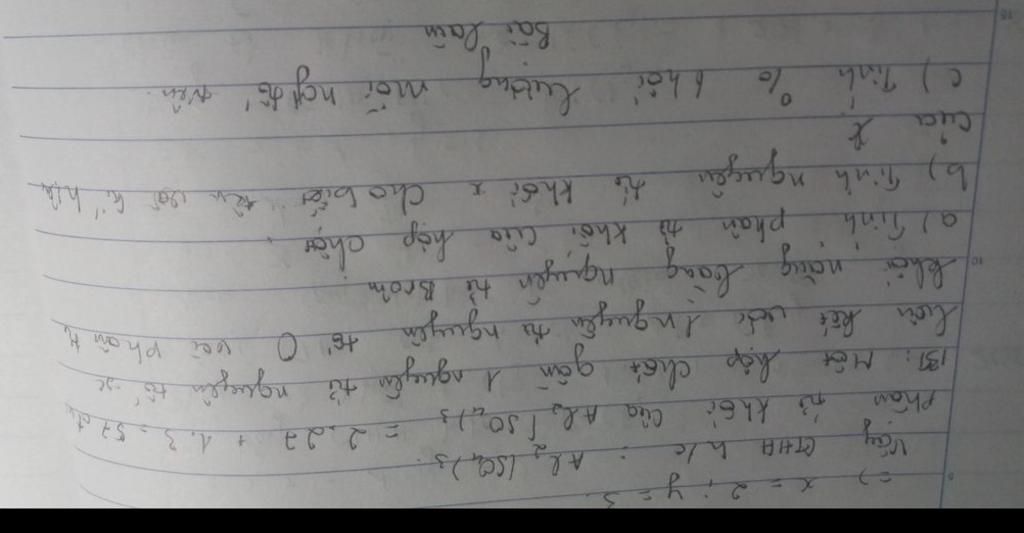 =) x = 2 ; y = 3.
Vậy CTHH h/c : Al2 (SO4)3.
phân tử khối của Al2 (SO4)3 = 2.27 + 1.3 = 57 đ
B1: Một hợp chất gồm 1 nguyên tử nguyên tố x
liên kết với 1 nguyên tử nguyên tố O và phân t
khối nặng bằng nguyên tử Brom
a) Tính phân tử khối của hợp chất.
b) Tính nguyên tử khối x cho biết tên và kí hiệu
của X
c) Tính % khối lượng mỗi ngtố trên.
Bài làm